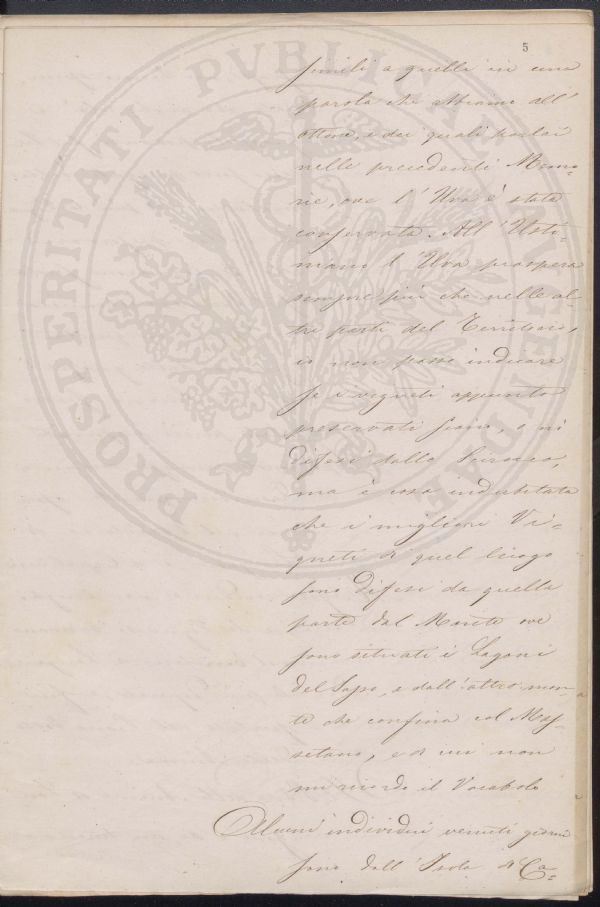 5
simili a quella in una
parola che abbiamo all'
ottone, e dei quali parlai
nelle precedenti Memo-
rie, ove l'Uva è stata
conservata. All'Usti-
mano l'Uva prospera
sempre più che nelle al-
tre parti del Territorio,
io non posso indicare
se i vigneti appunto
preservati siano, o no
difesi dallo Scirocco,
ma è cosa indubitata
che i migliori Vi-
gneti di quel luogo
sono difesi da quella
parte dal Monte ove
sono situati i Lagoni
del Sapo, e dall'altro mon-
te che confina col Mas-
setano, e di cui non
mi ricordo il Vocabolo
Alcuni individui venuti giorni
sono dall'Isola di Ca-
PROSPERITATI PVBLICAE AVGENDAE